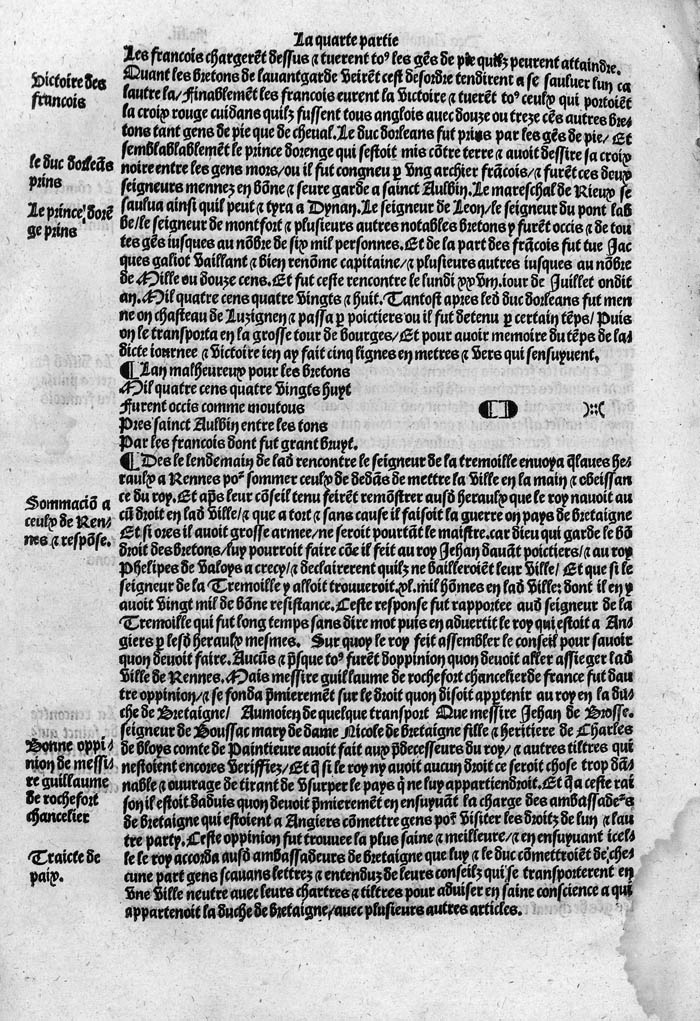 La quarte partie
Les francois chargerẽt dessus ⁊ tuerent toꝰ les gẽs de pie quilz peurent attaindre.
Quant les bretons de lauantgarde veirẽt cest desordre tendirent a se sauluer lun ca
lautre la/ Finablemẽt les francois eurent la victoire ⁊ tuerẽt toꝰ ceulx qui portoiẽt
la croix rouge cuidans quilz fussent tous anglois auec douze ou treze cẽs autres bre-
tons tant gens de pie que de cheval. Le duc dorleans fut prins par les gẽs de pie/ Et
semblablablemẽt le prince dorenge qui sestoit mis cõtre terre ⁊ auoit dessire sa croix
noire entre les gens mors/ou il fut congneu p vng archier frãcois/⁊ furẽt ces deux
seigneurs mennez en bõne ⁊ seure garde a sainct Aulbin. Le mareschal de Rieux se
saulua ainsi quil peut ⁊ tyra a Dynan. Le seigneur de Leon/le seigneur du pont lab
be/le seigneur de montfort ⁊ plusieurs autres notables bretons y furẽt occis ⁊ de tou
tes gẽs iusques au nõbre de six mil personnes. Et de la part des frãcois fut tue Jac
ques galiot vaillant ⁊ bien renõme capitaine/⁊ plusieurs autres iusques au nõbre
de Mille ou douze cens. Et fut ceste rencontre le lundi xxviii. iour de Juillet ondit
an. Mil quatre cens quatre vingts ⁊ huit. Tantost apres led duc dorleans fut men
ne on chasteau de Luzignen ⁊ passa p poictiers ou il fut detenu p certain tẽps/ Puis
on le transporta en la grosse tour de bourges/ Et pour auoir memoire du tẽps de la-
dicte iournee ⁊ victoire ien ay fait cinq lignes en metres ⁊ vers qui sensuyuent.
¶ Lan malheureux pour les bretons
Mil quatre cens quatre vingts huyt
Furent occis comme moutous
Pres sainct Aulbin entre les tons
Par les francois dont fut grant bruyt.
¶ Des le lendemain de lad rencontre le seigneur de la tremoille enuoya qlaues he-
raulx a Rennes poꝰ sommer ceulx de dedãs de mettre la ville en la main ⁊ obeissan
ce du roy. Et aps leur cõseil tenu feirẽt remõstrer ausd heraulx que le roy nauoit au
cũ droit en lad ville/⁊ que a tort ⁊ sans cause il faisoit la guerre on pays de bretaigne
Et si ores il auoit grosse armee/ne seroit pourtãt le maistre. car dieu qui garde le bõ
droit des bretons/luy pourroit faire cõe il feit au roy Jehan dauãt poictiers/⁊ au roy
Phelipes de valoys a crecy/⁊ declairerent quilz ne bailleroiẽt leur ville/ Et que si le
seigneur de la Tremoille y alloit trouueroit.xl.mil hõmes en lad ville: dont il en y
auoit vingt mil de bõne resistance. Ceste response fut rapportee aud seigneur de la
Tremoille qui fut long temps sans dire mot puis en aduertit le roy qui estoit a An-
giers p lesd heraulx mesmes. Sur quoy le roy feit assembler le conseil pour sauoir
quon deuoit faire. Aucũs ⁊ psque toꝰ furẽt doppinion quon deuoit aller assieger lad
ville de Rennes. Mais messire guillaume de rochefort chancelier de france fut dau
tre oppinion/⁊ se fonda pmierement sur le droit quon disoit apptenir au roy en la du-
che de Bretaigne/ Aumoien de quelque transport Que messire Jehan de Brosse.
seigneur de Boussac mary de dame Nicole de bretaigne fille ⁊ heritiere de Charles
de bloys comte de Paintieure auoit fait aux pdecesseurs du roy/⁊ autres tiltres qui
nestoient encores veriffiez/Et q si le roy ny auoit aucun droit ce seroit chose trop dã-
nable ⁊ ouurage de tirant de vsurper le pays q ne luy appartiendroit. Et q a ceste rai
son il estoit daduis quon deuoit pmierement en ensuyuant la charge des ambassadeˢ
de bretaigne qui estoient a Angiers cõmettre gens poꝰ visiter les droitz de lun ⁊ lau
tre party. Ceste oppinion fut trouuee la plus saine ⁊ meilleure/⁊ en ensuyuant icel-
le le roy accorda ausd ambassadeurs de bretaigne que luy ⁊ le duc cõmettroiẽt de che-
cune part gens scauans lettrez ⁊ entenduz de leurs conseilz qui se transporterent en
vne ville neutre auec leurs chartres ⁊ tiltres pour aduiser en saine conscience a qui
appartenoit la duche de bretaigne/auec plusieurs autres articles.
Victoire des
francois
le duc dorleãs
prins
Le prince dorẽ
ge prins
Sommaciõ a
ceulx de Ren-
nes ⁊ respõse.
Bonne oppi-
nion de messi-
re guillaume
de rochefort
chancelier
Traicte de
paix.